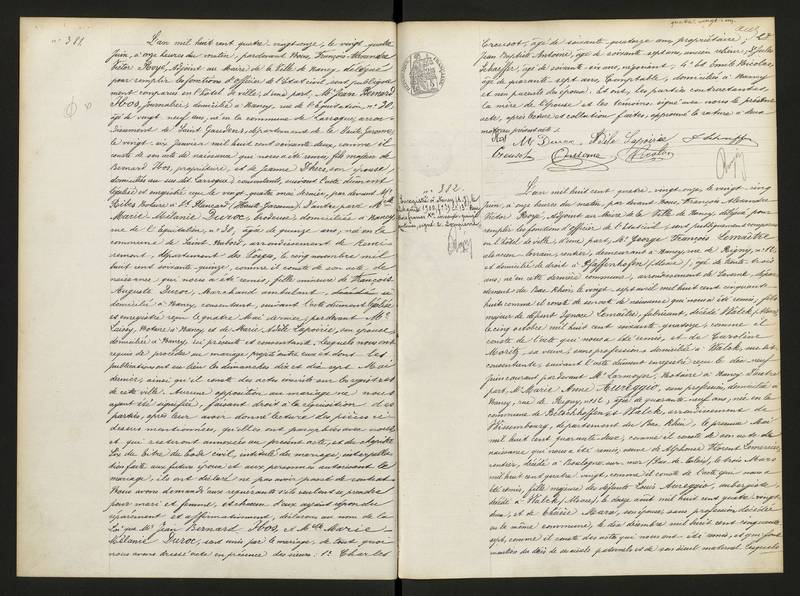 n° 381.
L'an mil huit cent quatre vingt onze, le vingt quatre
Juin, à onze heures du matin, pardevant Nous, François Alexandre
Victor Royé, Adjoint au Maire de la Ville de Nancy, délégué
pour remplir les fonctions d'officier de l'Etat civil, sont publique
ment comparus en l'hôtel de ville, d'une part, Mr Jean Bernard
Abos, journalier, domicilié à Nancy, rue de l'Equitation, n° 30,
âgé de vingt neuf ans, né en la commune de Larroque, arron-
dissement de Saint Gaudens, département de la Haute Garonne,
le vingt six Janvier mil huit cent soixante deux, comme il
conste de son acte de naissance qui nous a été remis, fils majeur de
Bernard Abos, propriétaire, et de Jeanne
domiciliés au sus dit Larroque, consentants, suivant l'acte dûment
légalisé et enregistré reçu le vingt quatre mai dernier, par devant Me
Notaire à (Haute Garonne). D'autre part Mlle
Marie Mélanie Duroc, brodeuse, domiciliée à Nancy,
rue de l'Equitation, n° 30, âgée de quinze ans, née en la
commune de Saint Nabord, arrondissement de Remi-
remont, département des Vosges, le cinq novembre mil
huit cent soixante quinze, comme il conste de son acte de
naissance, qui nous a été remis, fille mineure de François
Auguste Duroc, Marchand ambulant
domicilié à Nancy, consentant, suivant l'acte dûment légalisé
et enregistré reçu le quatre Mai dernier, pardevant Me
Notaire à Nancy et de Marie Adèle Lapoirie, son épouse,
domiciliée à Nancy, ici présente et consentante. Lesquels nous ont
requis de procéder au mariage projeté entre eux et dont les
publications ont eu lieu les dimanches dix et dix sept Mai
dernier, ainsi qu'il conste des actes inscrits sur les registres
de cette ville. Aucune opposition au mariage ne nous
ayant été signifiée, faisant droit à la réquisition des
parties, après leur avoir donné lecture des pièces ci
dessus mentionnées, qu'elles ont paraphées avec nous
et qui resteront annexées au présent acte, et du chapitre
Six du titre du Code civil, intitulé du mariage, interpellation
bien faite aux futurs époux et aux personnes autorisant le
mariage, ils ont déclaré ne pas avoir passé de contrat.
Nous avons demandé aux requérants s'ils veulent se prendre
pour mari et femme, et chacun d'eux ayant répondu
séparément et affirmativement, déclarons au nom de la
Loi que Mr Jean Bernard Abos, et Mlle Marie-
Mélanie Duroc, sont unis par le mariage, de tout quoi
nous avons dressé acte en présence des sieurs : 1° Charles
quatre vingt onze
Creusot, âgé de soixante quatorze ans, propriétaire, 2°
Jean Baptiste Antoine, âgé de soixante sept ans, ancien relieur, 3° Jules
Schaeffer, âgé de soixante six ans, négociant, 4° et Emile Nicolas,
âgé de quarante sept ans, Comptable, domiciliés à Nancy
et non parents des époux. Et ont, les parties contractantes,
la mère de l'épouse et les témoins signé avec nous le présent
acte, après lecture et collation faites, approuvé la rature
Abos M. Duroc Adèle Lapoirie Schaeffer
Creusot Antoine Nicolas
Royé
n° 382.
L'an mil huit cent quatre vingt onze, le vingt cinq
Juin, à onze heures du matin par devant Nous, François Alexandre
Victor Royé, Adjoint au Maire de la Ville de Nancy, délégué pour
remplir les fonctions d'officier de l'Etat civil, sont publiquement comparus
en l'hôtel de ville, d'une part, Mr George François Lemaître,
alsacien-lorrain, rentier, demeurant à Nancy, rue de Rigny, n° 12,
et domicilié de droit à Pfaffenhofen (Alsace), âgé de trente trois
ans, né en cette dernière commune, arrondissement de Saverne, dépar
tement du Bas Rhin, le vingt sept avril mil huit cent cinquante
huit comme il conste de son acte de naissance qui nous a été remis, fils
majeur de défunt Ignace Lemaître, fabricant, décédé à Walck (Alsace),
le cinq octobre mil huit cent soixante quatorze, comme il
conste de l'acte qui nous a été remis, et de Caroline
Moritz, sa veuve, sans profession, domiciliée à Walck, sus dit
consentante, suivant l'acte dûment enregistré reçu le dix neuf
Juin courant par devant Me Larmoyer, Notaire à Nancy. D'autre
part, Me Marie Anne Aureggio, sans profession, domiciliée à
Nancy, rue de Rigny, n° 12, âgée de quarante neuf ans, née en la
commune de Bitschhoffen et Walck, arrondissement de
Wissembourg, département du Bas Rhin, le premier Mai
mil huit cent quarante deux, comme il conste de son acte de
naissance qui nous a été remis, veuve de Alphonse Florent Lemercier,
rentier, décédé à Boulogne-sur-mer (Pas de Calais), le trois Mars
mil huit cent quatre vingt, comme il conste de l'acte qui nous a
été remis, fille majeure des défunts Louis Aureggio, aubergiste,
décédé à Walck (Alsace), le onze août mil huit cent quatre vingt
deux, et de Thérèse son épouse, sans profession, décédée
en la même commune, le dix décembre mil huit cent cinquante
sept, comme il conste des actes qui nous ont été remis, et que sont
mentionnés les décès de ses aïeuls paternels et de son aïeul maternel. Lesquels